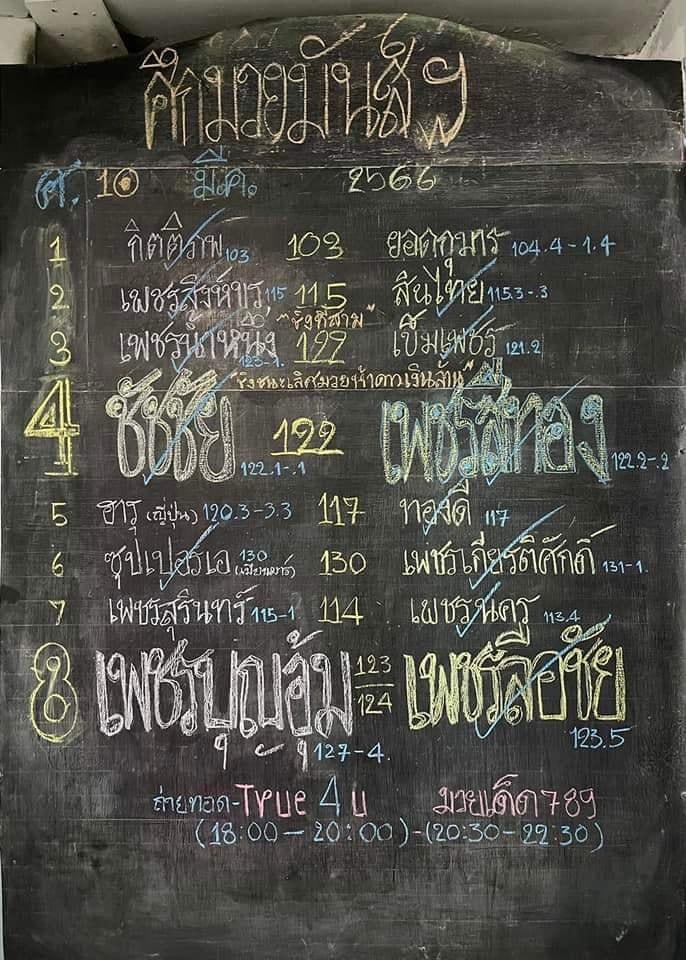 ศึกมวยมันส์ฯ
ศ. 10 มี.ค. 2566
1 กิตติภพ 103 103 ยอดกุมาร 104.4-1.4
2 เพชรสิงห์ขร 115 115 สินไทย 115.3-.3
"ชิงที่สาม"
3 เพชรน้ำหนึ่ง 123-1. 122 เข็มเพชร 121.2
"ชิงชนะเลิศมวยล่าดาวเงินล้าน"
4 ชัชชัย 122.1-.1 122 เพชรสีทอง 122.2-.2
5 ฮารุ (ญี่ปุ่น) 120.3-3.3 117 ทองดี 117
6 ซุปเปอร์เอ 130 (เมียนมาร์) 130 เพชรเกียรติศักดิ์ 131-1.
7 เพชรสุรินทร์ 115-1 114 เพชรนคร 113.4
8 เพชรบุญอุ้ม 127-4. 123/124 เพชรลือชัย 123.5
ถ่ายทอด-True 4 u มวยเด็ด789
(18:00-20:00)-(20:30-22:30)